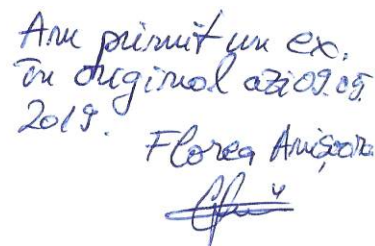 Am primit un ex.
în original azi 09.05.
2019.
Florea Anișoara